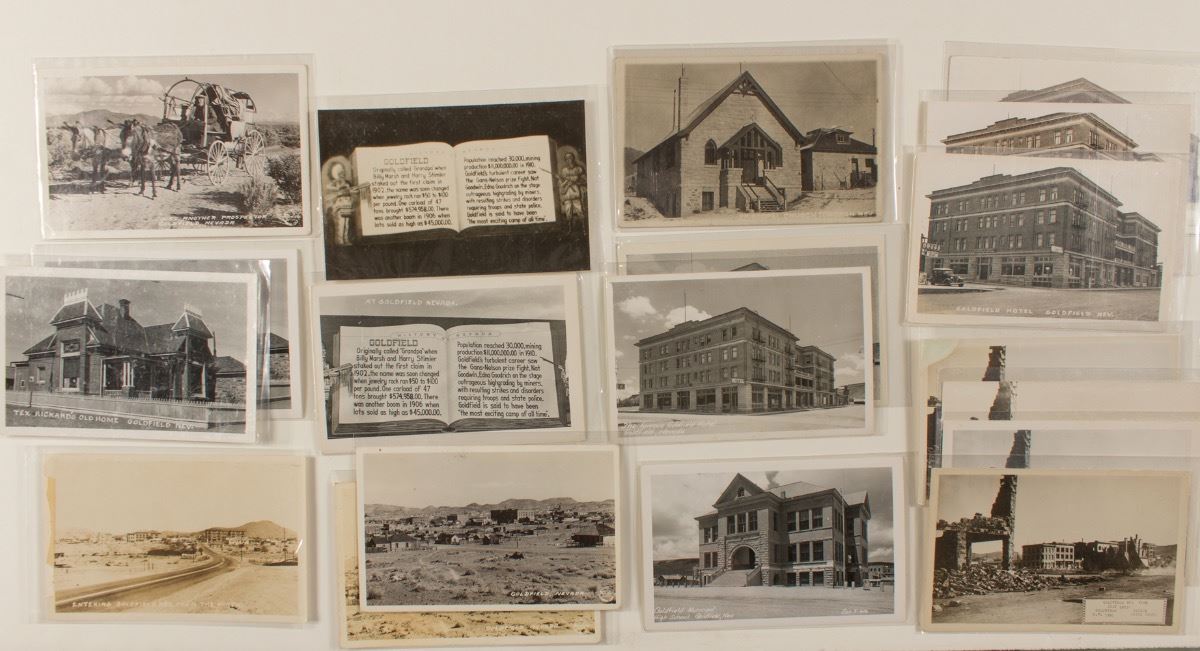 ANOTHER PROSPECTOR
NEVADA
GOLDFIELD
Originally called "Grandpa" when
Billy Marsh and Harry Stimler
staked out the first claim in
1902, the name was soon changed
when jewelry rock ran $50 to $100
per pound. One carload of 47
tons brought $574,958.00. There
was another boom in 1906 when
lots sold as high as $45,000.
Population reached 30,000, mining
production $11,000,000.00 in 1910.
Goldfield's turbulent career saw
the Gans-Nelson prize fight, Nat
Goodwin, Edna Goodrich on the stage
outrageous highgrading by miners,
with resulting strikes and disorders
requiring troops and state police.
Goldfield is said to have been
"the most exciting camp of all time".
TEX RICKARDS OLD HOME GOLDFIELD NEV.
AT GOLDFIELD NEVADA.
HISTORY NEVADA
GOLDFIELD
Originally called "Grandpa" when
Billy Marsh and Harry Stimler
staked out the first claim in
1902, the name was soon changed
when jewelry rock ran $50 to $100
per pound. One carload of 47
tons brought $574,958.00. There
was another boom in 1906 when
lots sold as high as $45,000.
Population reached 30,000, mining
production $11,000,000.00 in 1910.
Goldfield's turbulent career saw
the Gans-Nelson prize fight, Nat
Goodwin, Edna Goodrich on the stage
outrageous highgrading by miners,
with resulting strikes and disorders
requiring troops and state police.
Goldfield is said to have been
"the most exciting camp of all time".
GOLDFIELD HOTEL GOLDFIELD NEV.
ENTERING GOLDFIELD NEV. FROM THE
GOLDFIELD, NEVADA
Goldfield Municipal
High School Goldfield, Nev